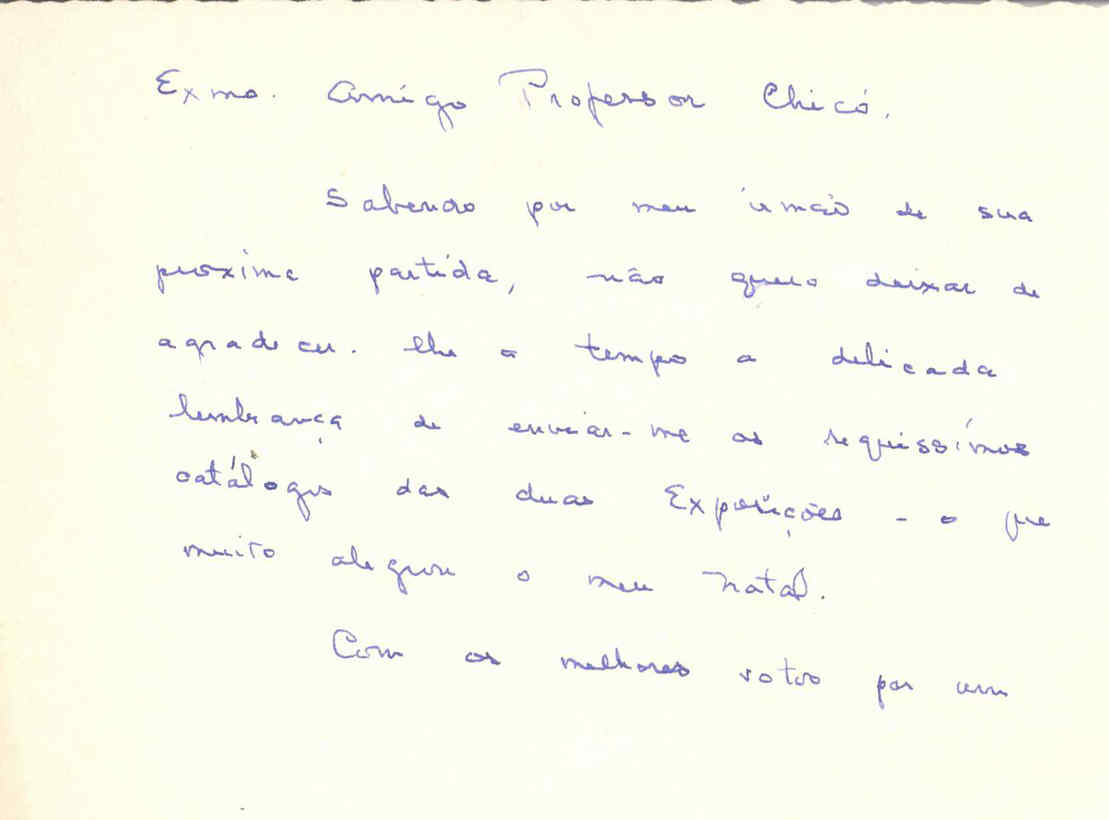 Exmo. Amigo Professor Chicó,
Sabendo por meu irmão de sua
proxima partida, não quero deixar de
agradecer-lhe a tempo a delicada
lembrança de enviar-me os requissímos
catálogos das duas Exposições - o que
muito alegrou o meu Natal.
Com os melhores votos por um